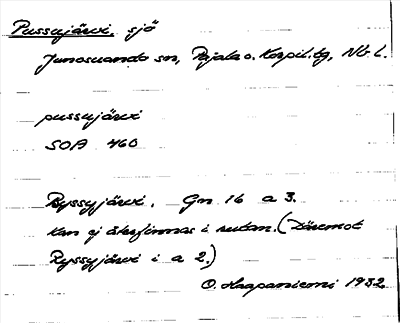 Pussujärvi, sjö
Junosuando sn, Pajala o. Korpil. tg, Nb. l.
pussujärvi
SOA 460
Pyssyjärvi, Gn 16 a 3.
kan ej återfinnas i rutan. (Däremot
Pyssyjärvi i a 2.)
O. Haapaniemi 1932